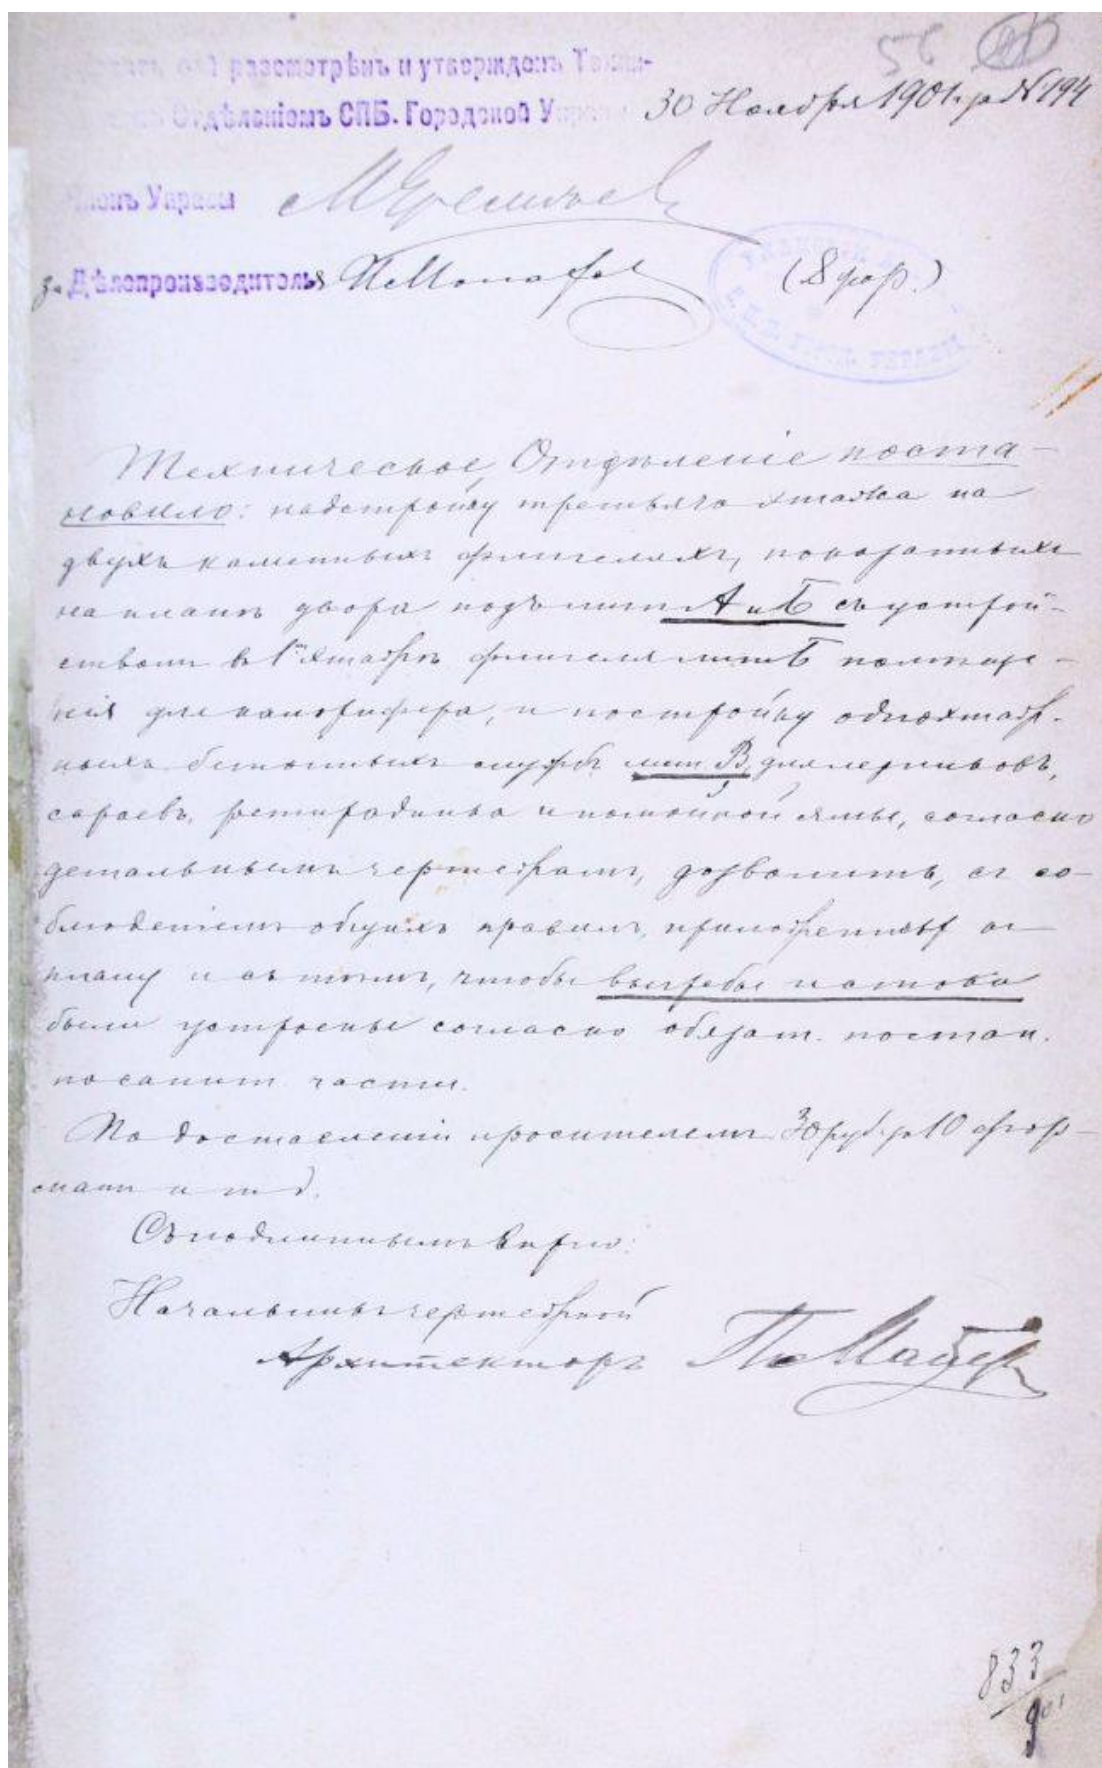 56
разсмотрѣнъ и утвержденъ Техни-
Отдѣленіемъ СПБ. Городской Управы 30 Ноября 1901 г. за № 194
Членъ Управы
за Дѣлопроизводителя
(8 фор.)
Техническое Отдѣленіе поста-
новило: надстройку третьяго этажа на
двухъ каменныхъ флигеляхъ, показанныхъ
на планѣ двора подъ лит А и Б съ устрой-
ствомъ въ 1мъ этажѣ флигеля лит Б помѣще-
нія для калорифера, и постройку одноэтаж-
ныхъ бетонныхъ службъ лит В, для ледниковъ,
сараевъ, ретирадника и помойной ямы, согласно
детальнымъ чертежамъ, дозволить, съ со-
блюденіемъ общихъ правилъ, приложенныхъ къ
плану и съ тѣмъ, чтобы выгребы и стоки
были устроены согласно обязат. постан.
по санит. части.
По доставленіи просителемъ 30 руб. за 10 фор-
мами и т д.
Съ подлиннымъ вѣрно:
Начальникъ чертежной
Архитекторъ
833
901